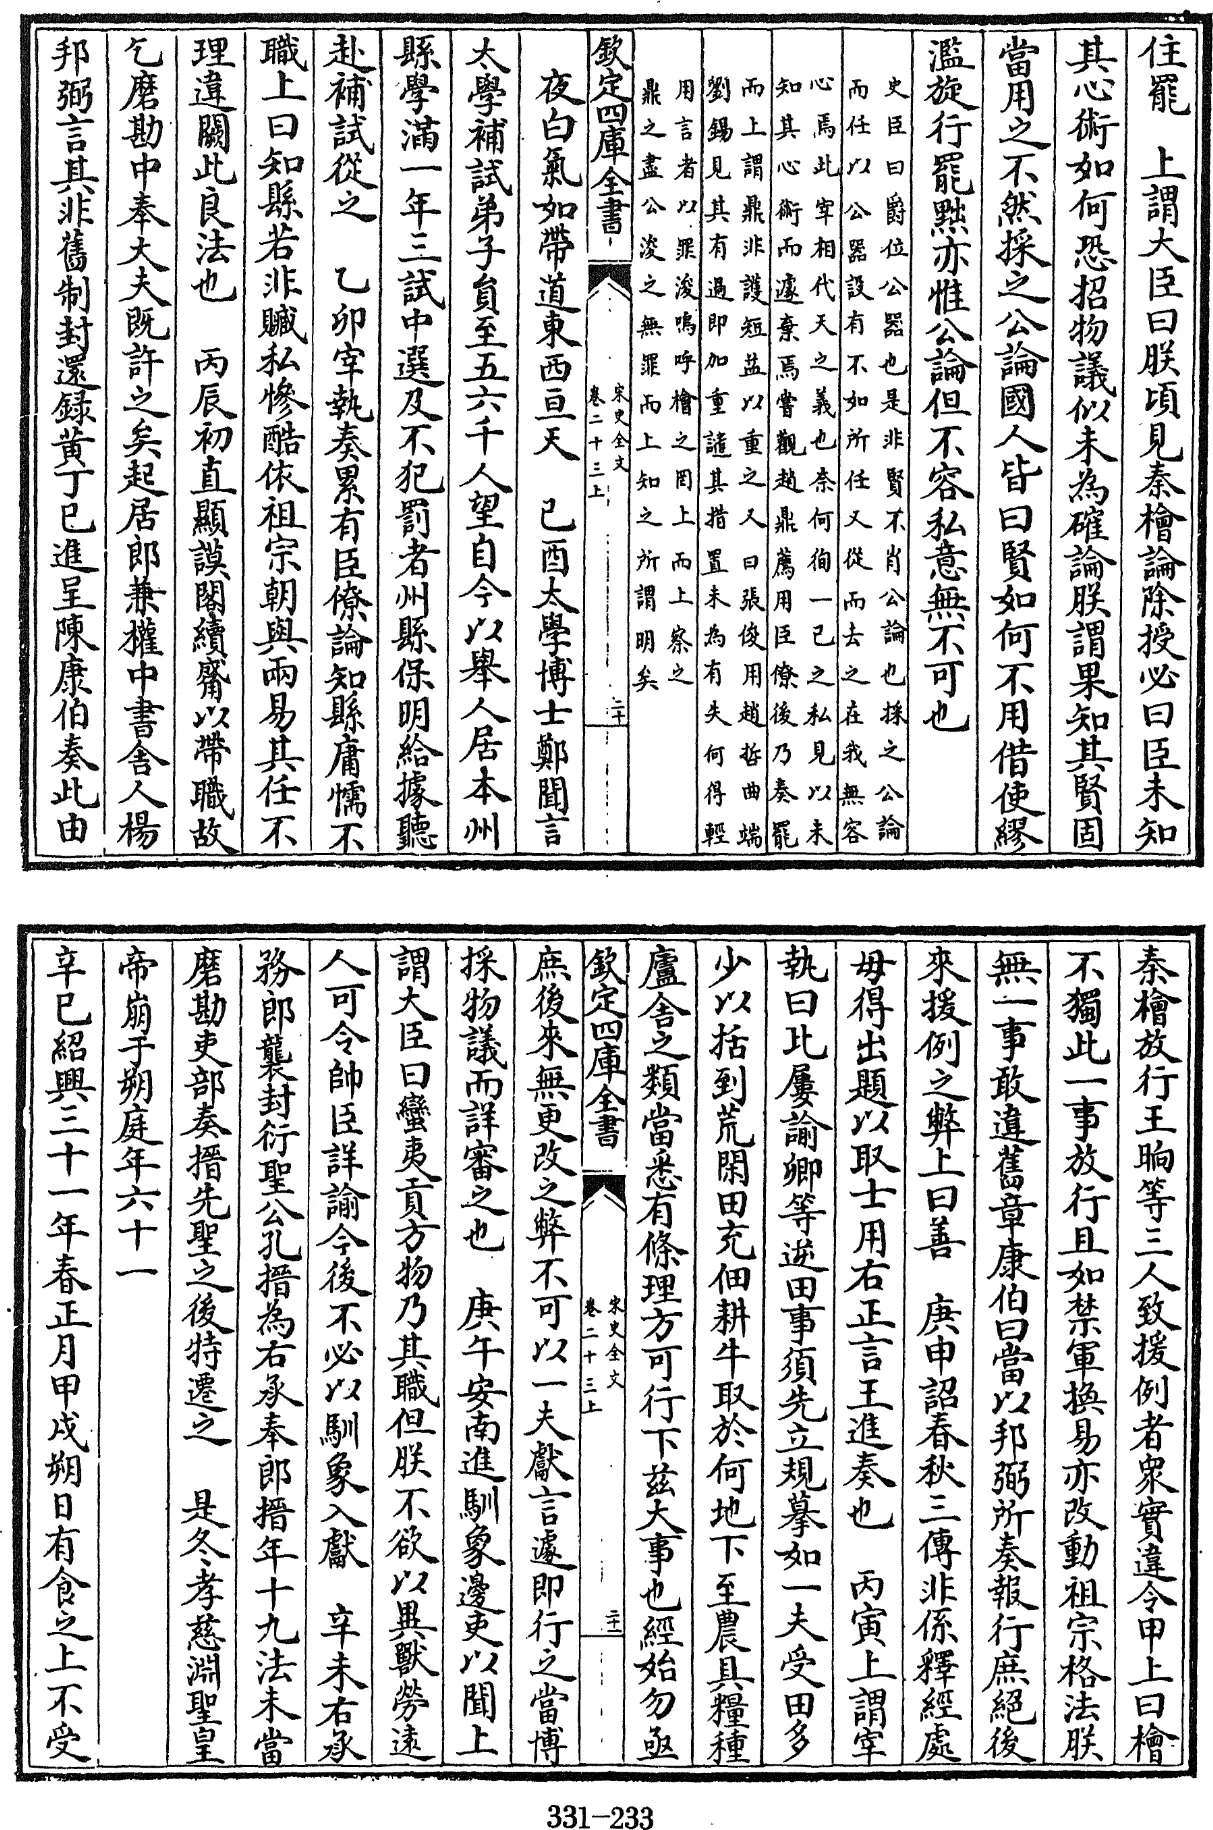 住罷　上謂大臣曰朕頃見秦檜論除授必曰臣未知
其心術如何恐招物議似未為確論朕謂果知其賢固
當用之不然採之公論國人皆曰賢如何不用借使繆
濫旋行罷黜亦惟公論但不容私意無不可也
史臣曰爵位公器也是非賢不肖公論也採之公論
而任以公器設有不如所任又從而去之在我無容
心焉此宰相代天之義也奈何徇一已之私見以未
知其心術而遽棄焉嘗觀趙鼎薦用臣僚後乃奏罷
而上謂鼎非護短益以重之又曰張俊用趙哲曲端
劉錫見其有過即加重譴其措置未為有失何得輕
用言者以罪浚嗚呼檜之罔上而上察之
鼎之盡公浚之無罪而上知之所謂明矣
欽定四庫全書
宋史全文
卷二十三上
二十
夜白氣如帶道東西亘天　己酉太學博士鄭聞言
太學補試弟子員至五六千人望自今以舉人居本州
縣學滿一年三試中選及不犯罰者州縣保明給據聽
赴補試從之　乙卯宰執奏累有臣僚論知縣庸懦不
職上曰知縣若非贓私慘酷依祖宗朝與兩易其任不
理違闕此良法也　丙辰初直顯謨閣續觱以帶職故
乞磨勘中奉大夫既許之矣起居郎兼權中書舍人楊
邦弼言其非舊制封還録黄丁巳進呈陳康伯奏此由
秦檜放行王晌等三人致援例者衆實違令甲上曰檜
不獨此一事放行且如禁軍換易亦改動祖宗格法朕
無一事敢違舊章康伯曰當以邦弼所奏報行庶絕後
來援例之弊上曰善　庚申詔春秋三傳非係釋經處
毋得出題以取士用右正言王進奏也　丙寅上謂宰
執曰比屢諭卿等逆田事須先立規摹如一夫受田多
少以括到荒閑田充佃耕牛取於何地下至農具糧種
廬舍之類當悉有條理方可行下茲大事也經始勿亟
欽定四庫全書
宋史全文
卷二十三上
二十一
庶後來無更改之弊不可以一夫獻言遽即行之當博
採物議而詳審之也　庚午安南進馴象邊吏以聞上
謂大臣曰蠻夷貢方物乃其職但朕不欲以異獸勞遠
人可令帥臣詳諭今後不必以馴象入獻　辛未右承
務郎襲封衍聖公孔搢為右承奉郎搢年十九法未當
磨勘吏部奏搢先聖之後特遷之　是冬孝慈淵聖皇
帝崩于朔庭年六十一
辛巳紹興三十一年春正月甲戌朔日有食之上不受
331-233